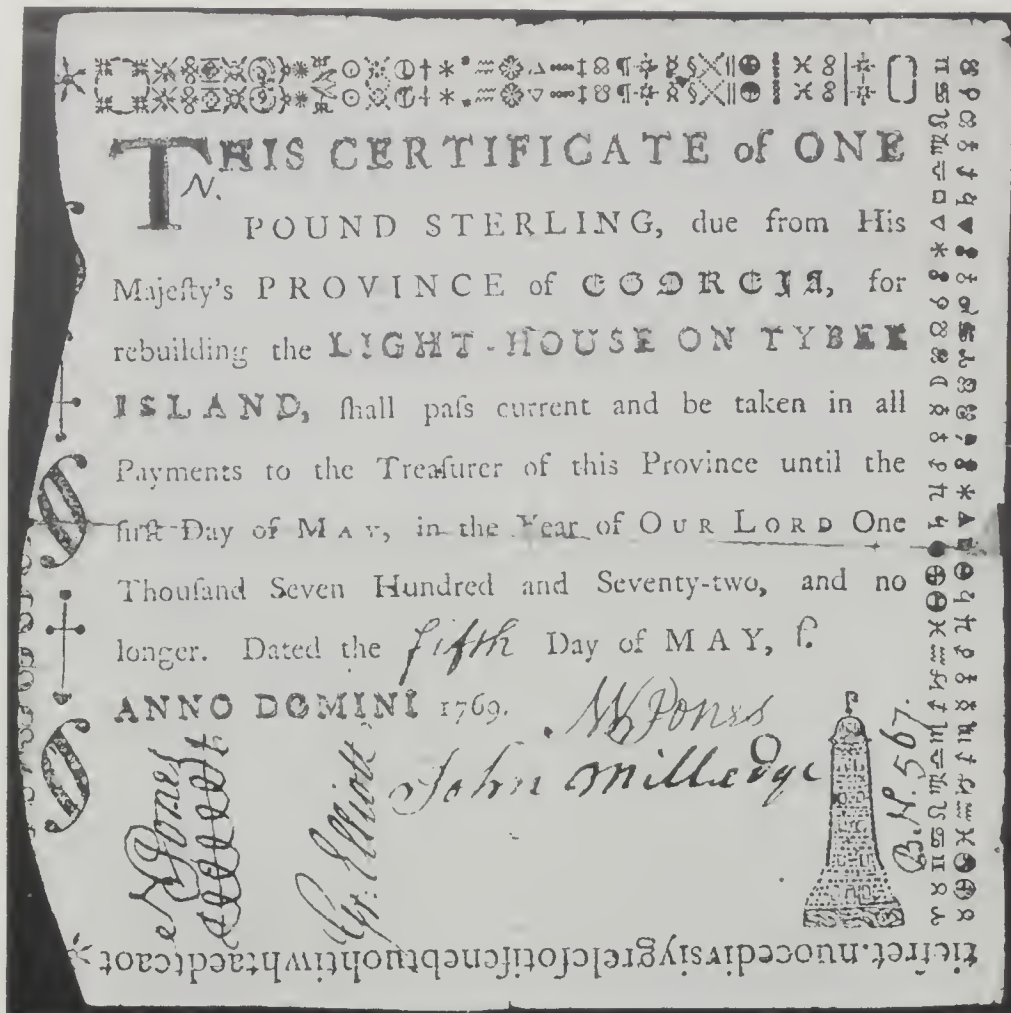 THIS CERTIFICATE of ONE
N.
POUND STERLING, due from His
Majeſty's PROVINCE of GEORGIA, for
rebuilding the LIGHT-HOUSE ON TYBEE
ISLAND, ſhall paſs current and be taken in all
Payments to the Treaſurer of this Province until the
firſt Day of MAY, in the Year of OUR LORD One
Thouſand Seven Hundred and Seventy-two, and no
longer. Dated the fifth Day of MAY,
ANNO DOMINI 1769.
Jones
John Milledge
Gr. Elliott
Jones
B. N. 567.